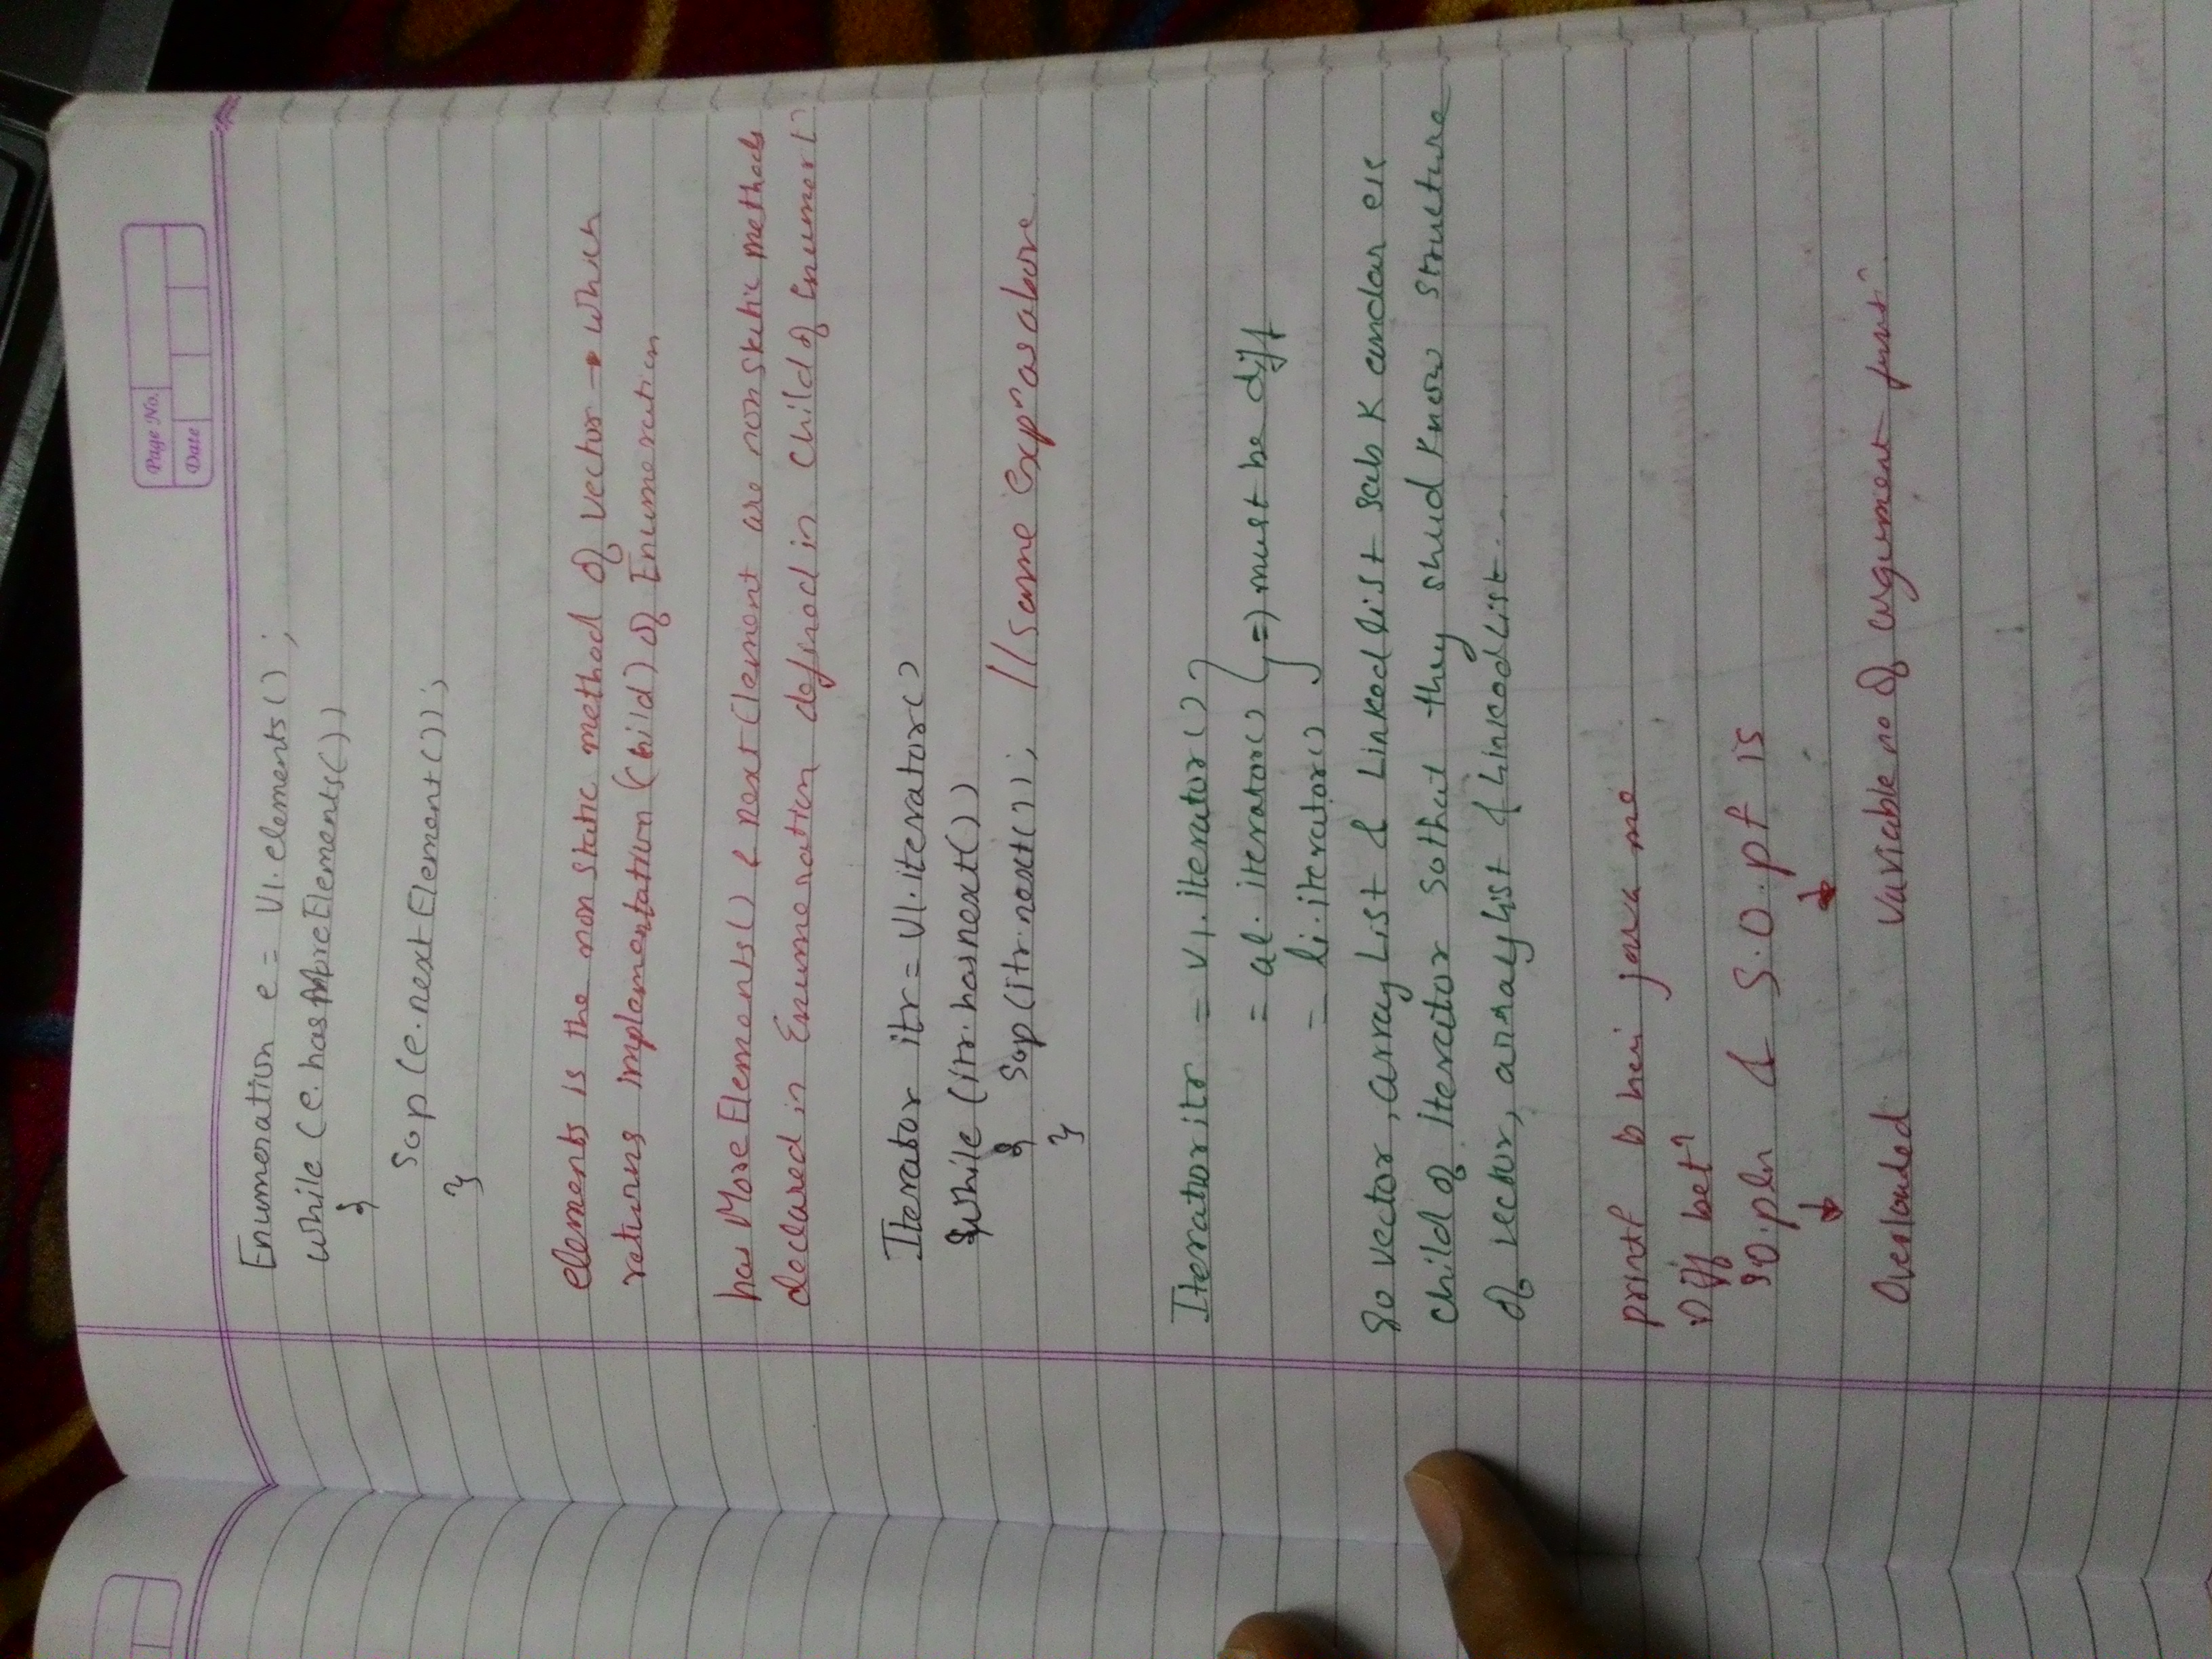 Page No.
Date
Enumeration e = V1.elements() ;
while (e.hasMoreElements())
{
Sop (e.nextElement());
}
elements is the non static method of vector → which
returns implementation (child) of Enumeration
has MoreElements() & nextElement are non static methods
declared in Enumeration defined in child of Enumert?
Iterator itr = V1.iterator()
while (itr.hasnext())
{ Sop(itr.next()); //same expn as above
}
Iterator itr = v1.iterator()
= al.iterator() } => must be diff
= li.iterator()
So vector, array List & Linked list sab k andar ek
child of iterator so that they shud know structure
of vector, array list & Linked List.
printf b hai java me
Diff betn
S.O.pln & S.O.pf is
↓ ↓
Overloaded Variable no of argument funt?